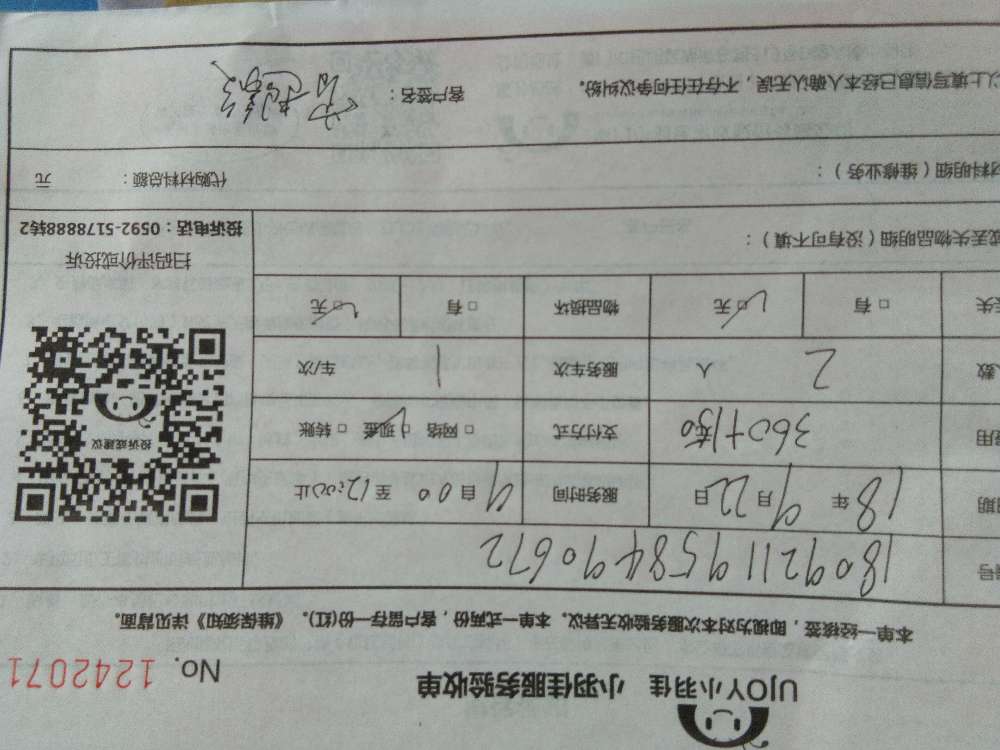 UJOY小羽佳 小羽佳服务验收单
No. 1242071
本单一经接签，即视为对本次服务验收无异议。本单一式两份，客户留存一份(红)。《维保须知》详见背面。
号 180921195849 0672
期 18年9月22日 服务时间 9:00自 至12:00止
用 360+ 支付方式 □网络 □现金 □转账
数 2 人 服务车次 1 车/次
失 □有 □无 物品损坏 □有 □无
或丢失物品明细（没有可不填）：
材料明细（维修业务）： 代购材料总额： 元
以上填写信息已经本人确认无误，不存在任何争议纠纷。 客户签名：
投诉或建议
扫码评价或投诉
投诉电话：0592-5178888转2